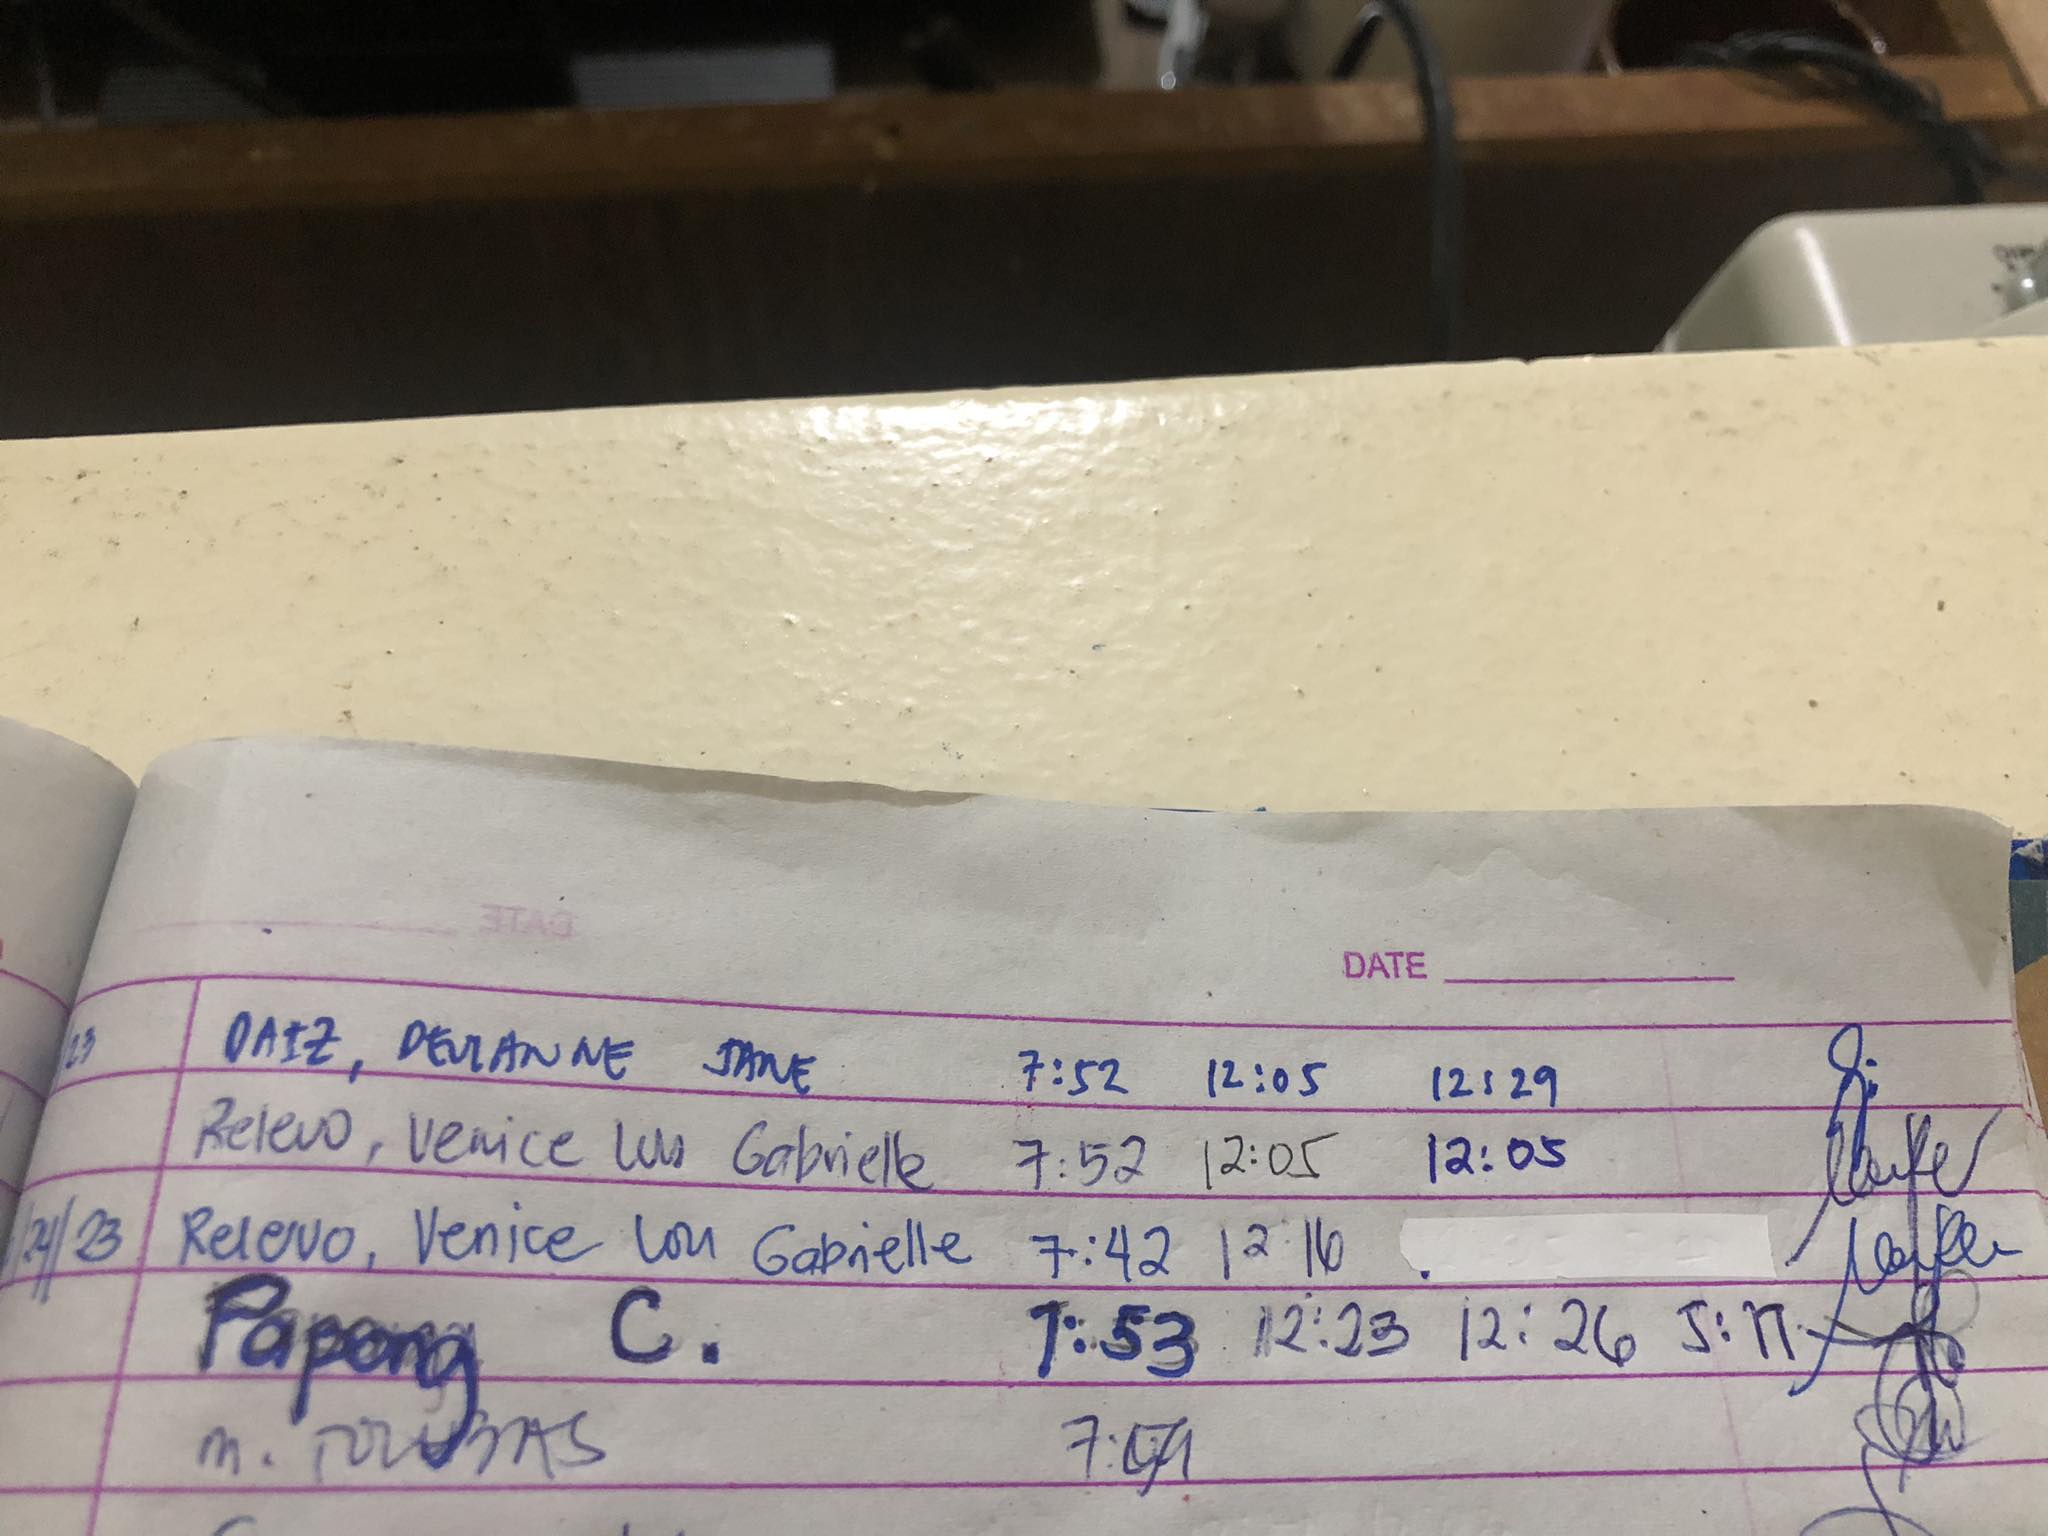 DATE
23 DAIZ, DEVIANNE JANE 7:52 12:05 12:29
Relevo, Venice Lou Gabrielle 7:52 12:05 12:05
/24/23 Relevo, Venice Lou Gabrielle 7:42 12:16
Papong C. 7:53 12:23 12:26 5:17
m.